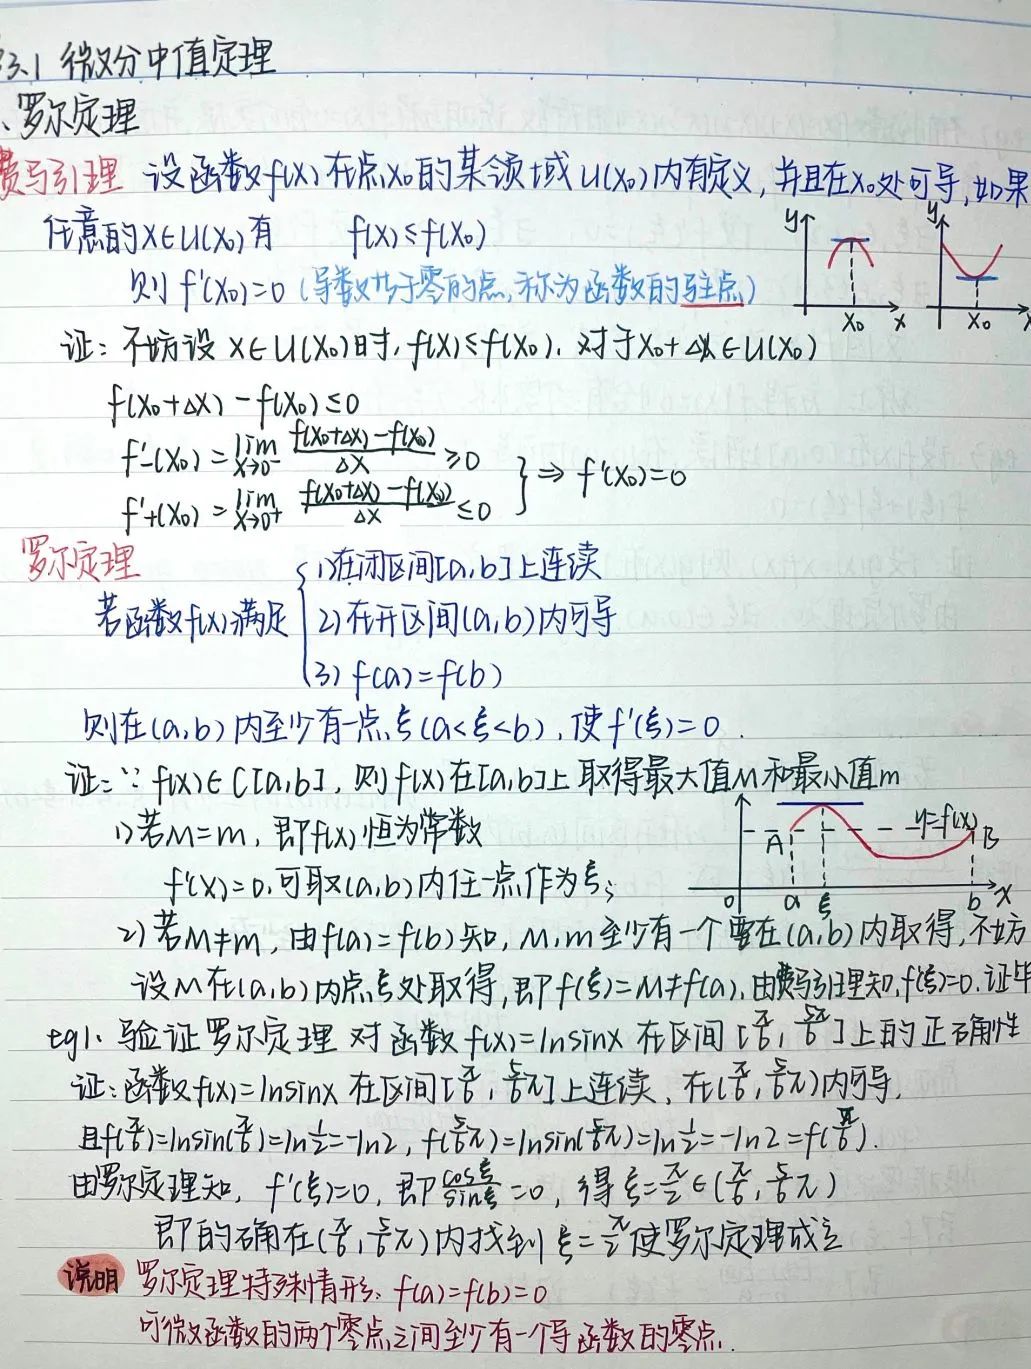 3.1 微分中值定理
、罗尔定理
费马引理 设函数f(x)在点x₀的某领域U(x₀)内有定义,并且在x₀处可导,如果
任意的x∈U(x₀)有 f(x)≤f(x₀)
则 f'(x₀)=0 (导数等于零的点,称为函数的驻点)
y x₀ x
y x₀ x
证: 不妨设 x∈U(x₀)时, f(x)≤f(x₀). 对于x₀+Δx∈U(x₀)
f(x₀+Δx)-f(x₀)≤0
f'-(x₀)=lim x→0⁻ (f(x₀+Δx)-f(x₀))/Δx ≥0
f'+(x₀)=lim x→0⁺ (f(x₀+Δx)-f(x₀))/Δx ≤0 } ⇒ f'(x₀)=0
罗尔定理
若函数f(x)满足 { 1)在闭区间[a,b]上连续
2)在开区间(a,b)内可导
(3) f(a)=f(b)
则在(a,b)内至少有一点ξ(a<ξ<b),使f'(ξ)=0.
证:∵ f(x)∈C[a,b], 则f(x)在[a,b]上取得最大值M和最小值m
1)若M=m, 即f(x)恒为常数
f'(x)=0,可取(a,b)内任一点作为ξ;
A y=f(x) B
0 a ξ b x
2)若M≠m, 由f(a)=f(b)知, M,m至少有一个要在(a,b)内取得,不妨
设M在(a,b)内点ξ处取得,即f(ξ)=M≠f(a),由费马引理知,f'(ξ)=0.证毕
eg1. 验证罗尔定理对函数f(x)=lnsinx在区间[π/6, 5π/6]上的正确性
证:函数f(x)=lnsinx在区间[π/6, 5/6π]上连续, 在(π/6, 5/6π)内可导,
且f(π/6)=lnsin(π/6)=ln1/2=-ln2, f(5/6π)=lnsin(5/6π)=ln1/2=-ln2=f(π/6).
由罗尔定理知, f'(ξ)=0, 即cosξ/sinξ=0, 得ξ=π/2∈(π/6, 5/6π)
即的确在(π/6, 5/6π)内找到ξ=π/2使罗尔定理成立
说明 罗尔定理特殊情形: f(a)=f(b)=0
可微函数的两个零点之间至少有一个导函数的零点.